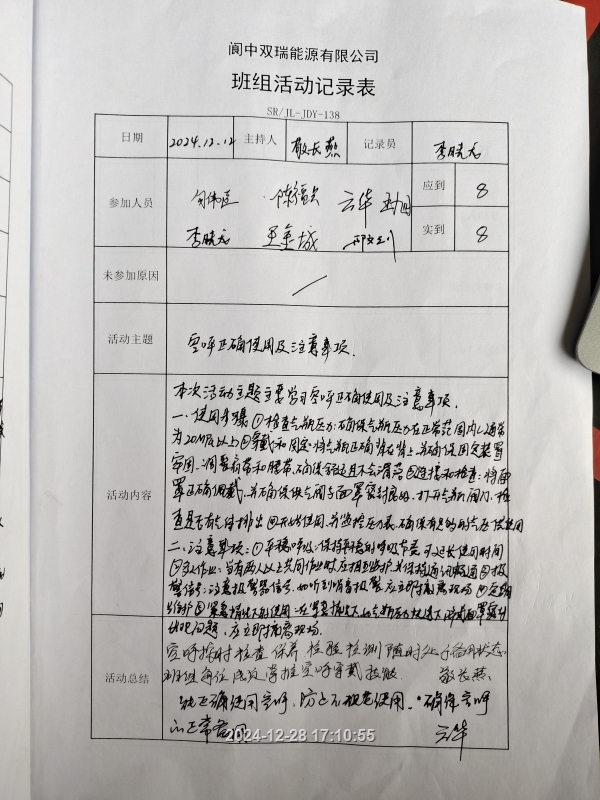 阆中双瑞能源有限公司
班组活动记录表
SR/JL-JDY-138
日期 2024.12.12 主持人 敬长燕 记录员 李晓龙
参加人员 云华 应到 8
李晓龙 实到 8
未参加原因 /
活动主题 空呼正确使用及注意事项.
活动内容
本次活动主题主要学习空呼正确使用及注意事项.
一、使用步骤①检查气瓶压力:确保气瓶压力在正常范围内(通常
为20MPa以上②穿戴和固定:将气瓶正确背在背上,并确保固定装置
牢固、调整肩带和腰带,确保舒适且不会滑落③连接和检查:将面
罩正确佩戴,并确保供气阀与面罩密封良好,打开气瓶阀门,检
查是否有气体排出④开始使用,并监控压力表,确保有足够的气压供使用
二、注意事项:①平稳呼吸:保持平稳的呼吸节奏,可延长使用时间
作业:当有两人以上共同作业时应相互监护,并保持通讯畅通③报
警信号:注意报警器信号,如听到哨音报警,应立即撤离现场④定期
维护⑤紧急情况下的使用:在紧急情况下,如气瓶压力快速下降或面罩密封
出现问题,应立即撤离现场.
活动总结
空呼按时检查保养检验检测随时处于备用状态
班组每位成员掌握空呼穿戴技能 敬长燕.
正确使用空呼,防止不规范使用.确保空呼
正常备用 云华
2024-12-28 17:10:55